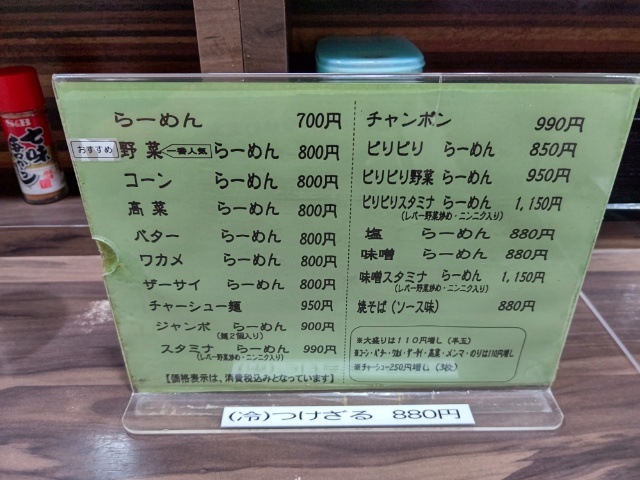 S&B
七味
らーめん 700円
おすすめ 野菜 一番人気 らーめん 800円
コーン らーめん 800円
高菜 らーめん 800円
バター らーめん 800円
ワカメ らーめん 800円
ザーサイ らーめん 800円
チャーシュー麺 950円
ジャンボ らーめん 900円
(麺2個入り)
スタミナ らーめん 990円
(レバー野菜炒め・ニンニク入り)
【価格表示は、消費税込みとなっています】
チャンポン 990円
ピリピリ らーめん 850円
ピリピリ野菜 らーめん 950円
ピリピリスタミナ らーめん 1,150円
(レバー野菜炒め・ニンニク入り)
塩 らーめん 880円
味噌 らーめん 880円
味噌スタミナ らーめん 1,150円
(レバー野菜炒め・ニンニク入り)
焼そば(ソース味) 880円
※大盛りは110円増し(半玉)
※コーン・バター・ワカメ・ザーサイ・高菜・メンマ・のりは110円増し
※チャーシュー250円増し(3枚)
(冷)つけざる 880円